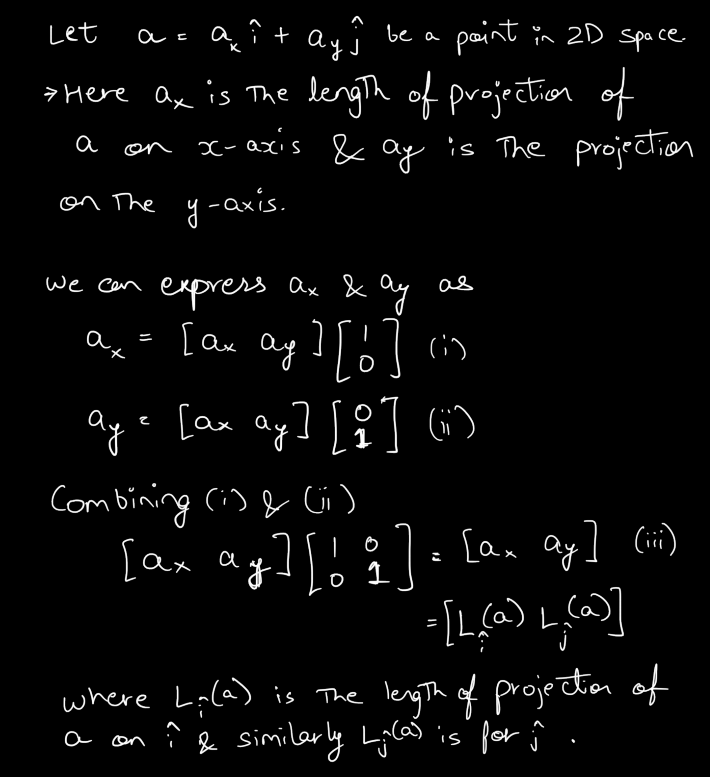 Let a = aₓ î + a_y ĵ be a point in 2D space.
→ Here aₓ is the length of projection of
a on x-axis & a_y is the projection
on the y-axis.
we can express aₓ & a_y as
aₓ = [aₓ a_y] [1 0] (i)
a_y = [aₓ a_y] [0 1] (ii)
Combining (i) & (ii)
[aₓ a_y] [1 0 0 1] = [aₓ a_y] (iii)
= [L_î(a) L_ĵ(a)]
where L_î(a) is the length of projection of
a on î & similarly L_ĵ(a) is for ĵ.